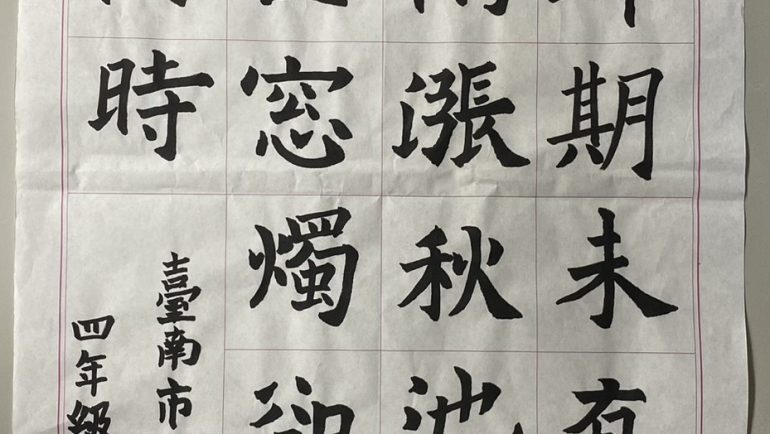 期未有
漲秋池
窓燭卻
時
臺南市
四年級